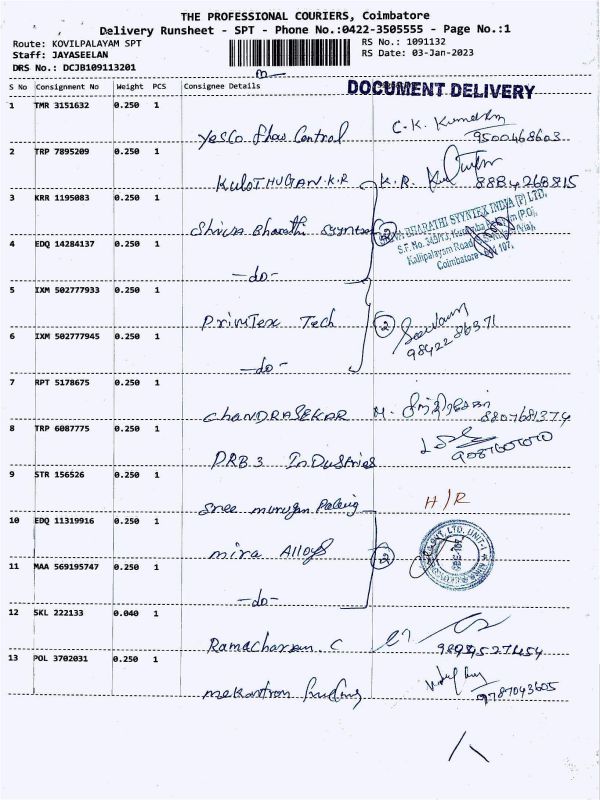 THE PROFESSIONAL COURIERS, Coimbatore
Delivery Runsheet - SPT - Phone No.:0422-3505555 - Page No.:1
Route: KOVILPALAYAM SPT
Staff: JAYASEELAN
DRS No.: DCJB109113201
RS No.: 1091132
RS Date: 03-Jan-2023
DOCUMENT DELIVERY
S No Consignment No Weight PCS Consignee Details
1 TMR 3151632 0.250 1
Yesco Flow Control C.K. 9500468603
2 TRP 7895209 0.250 1
KULOTHUGAN.K.R K.R. 8884268815
3 KRR 1195083 0.250 1
Shiva Bharathi Syyntex 2
BHARATHI SYYNTEX INDIA (P) LTD.
Coimbatore 107.
4 EDQ 14284137 0.250 1
-do-
5 IXM 502777933 0.250 1
PrimTex Tech 2
9842286371
6 IXM 502777945 0.250 1
-do-
7 RPT 5178675 0.250 1
CHANDRASEKAR M. 8807681374
8 TRP 6087775 0.250 1
P.R.B.3 InDustries
9 STR 156526 0.250 1
Sree Murugan H/R
10 EDQ 11319916 0.250 1
mira Alloys 2
11 MAA 569195747 0.250 1
-do-
12 SKL 222133 0.040 1
C
13 POL 3702031 0.250 1
9787043605